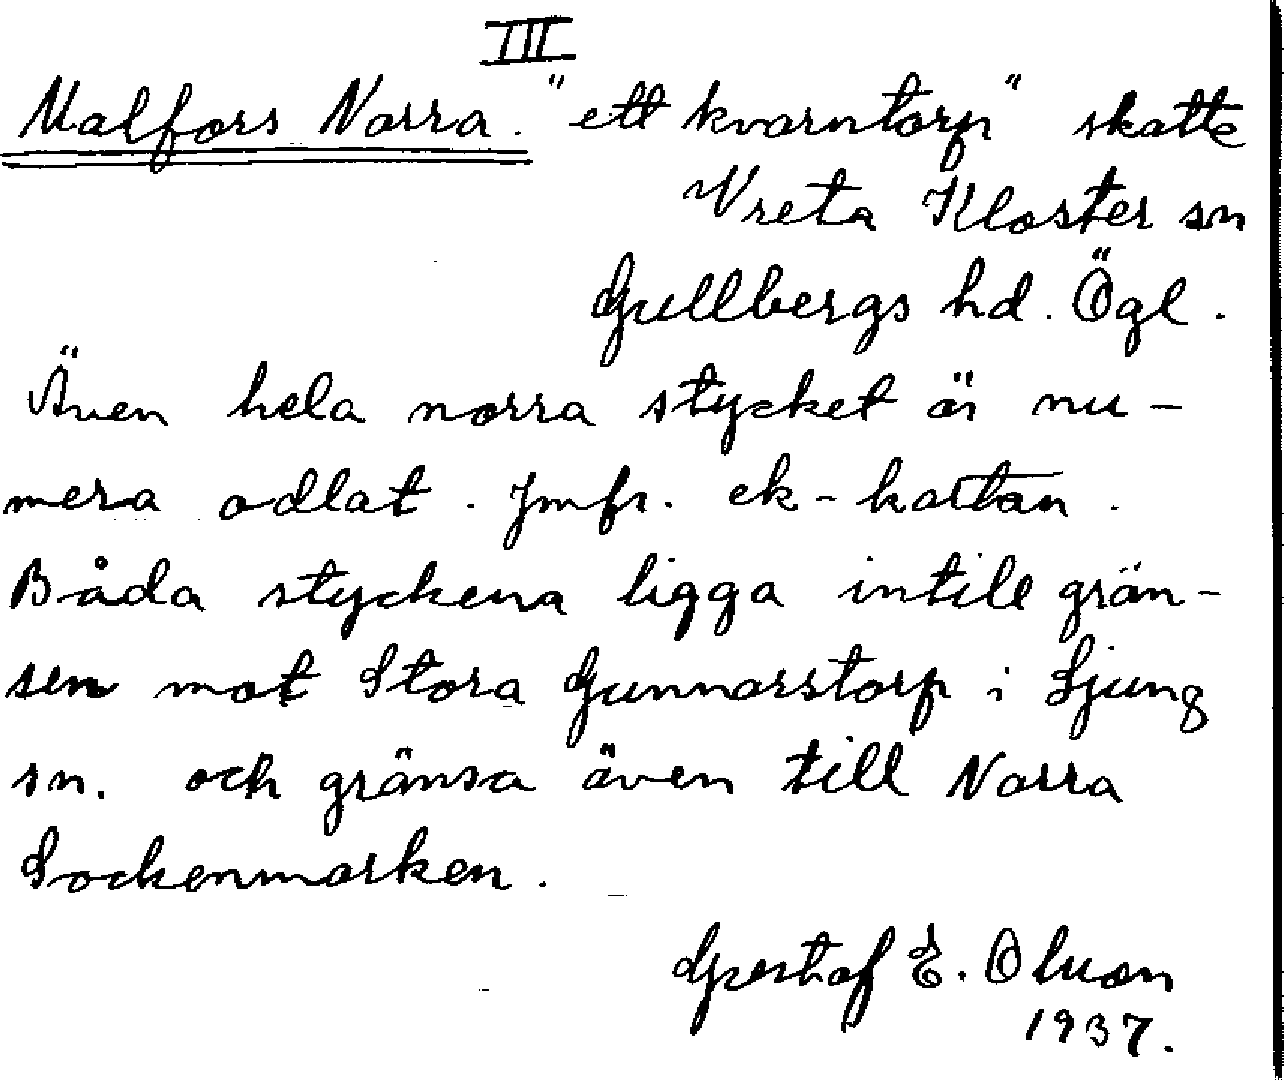 III
Malfors Norra. "ett kvarntorp" skatte
Vreta Kloster sn
Gullbergs hd. Ögl.
Även hela norra stycket är nu-
mera odlat. Jmfr. ek-kartan.
Båda styckena ligga intill grän-
sen mot Stora Gunnarstorp i Ljung
sn. och gränsa även till Norra
Sockenmarken.
Gustaf E. Olsson
1937.